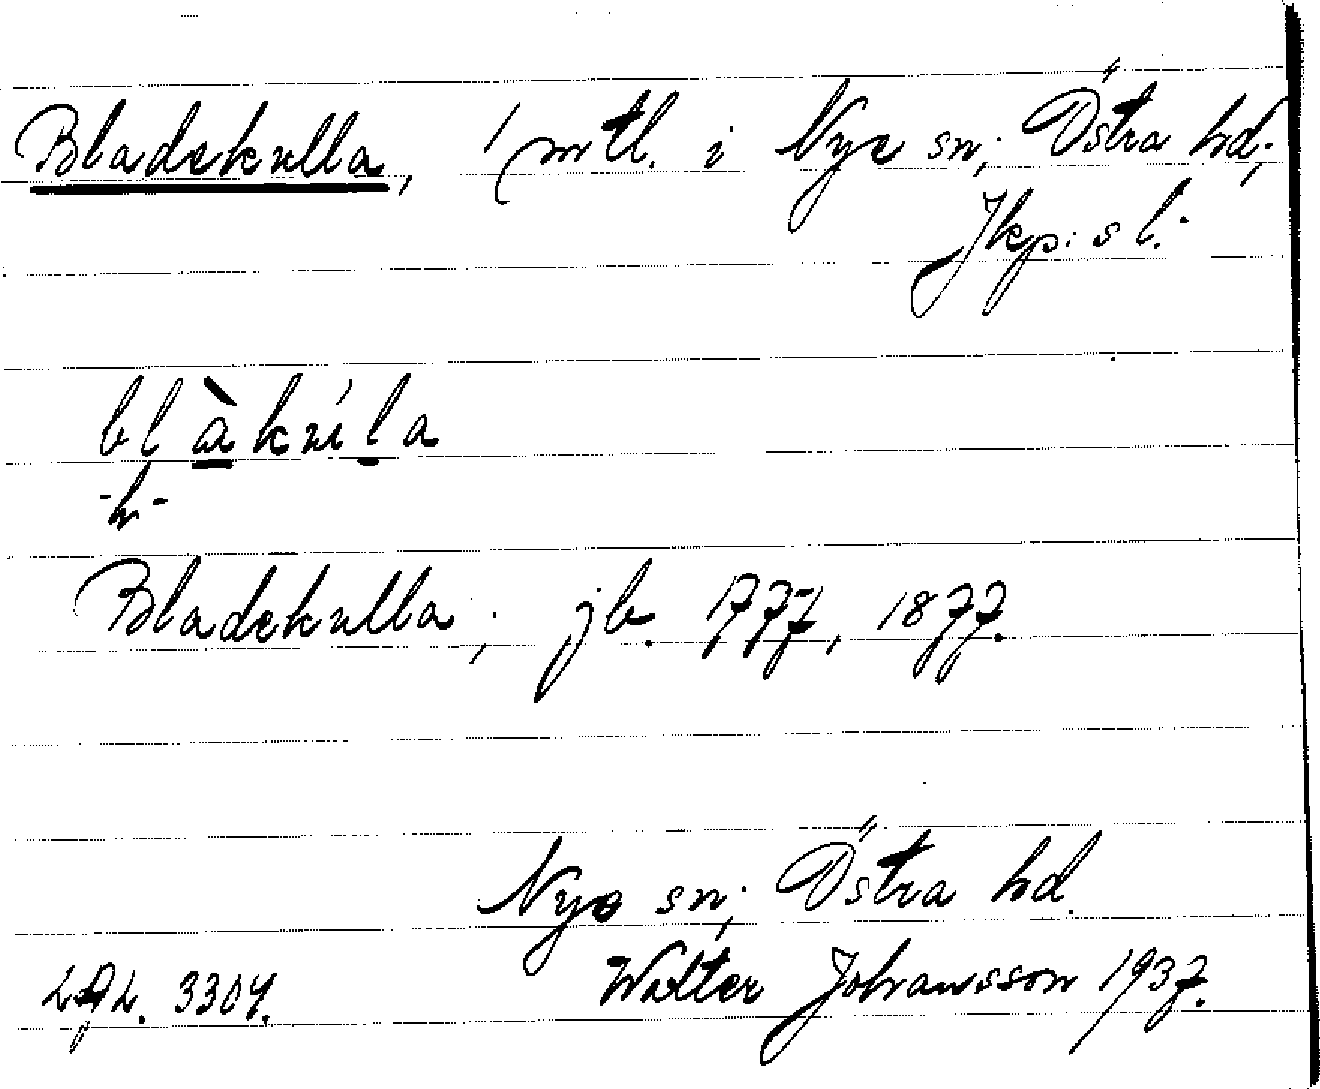 Bladekulla, 1 mtl. i Nye sn; Östra hd;
Jkp:s l.
blàkúla
-h-
Bladekulla, jb. 1777, 1877.
Nye sn; Östra hd.
Walter Johansson 1937.